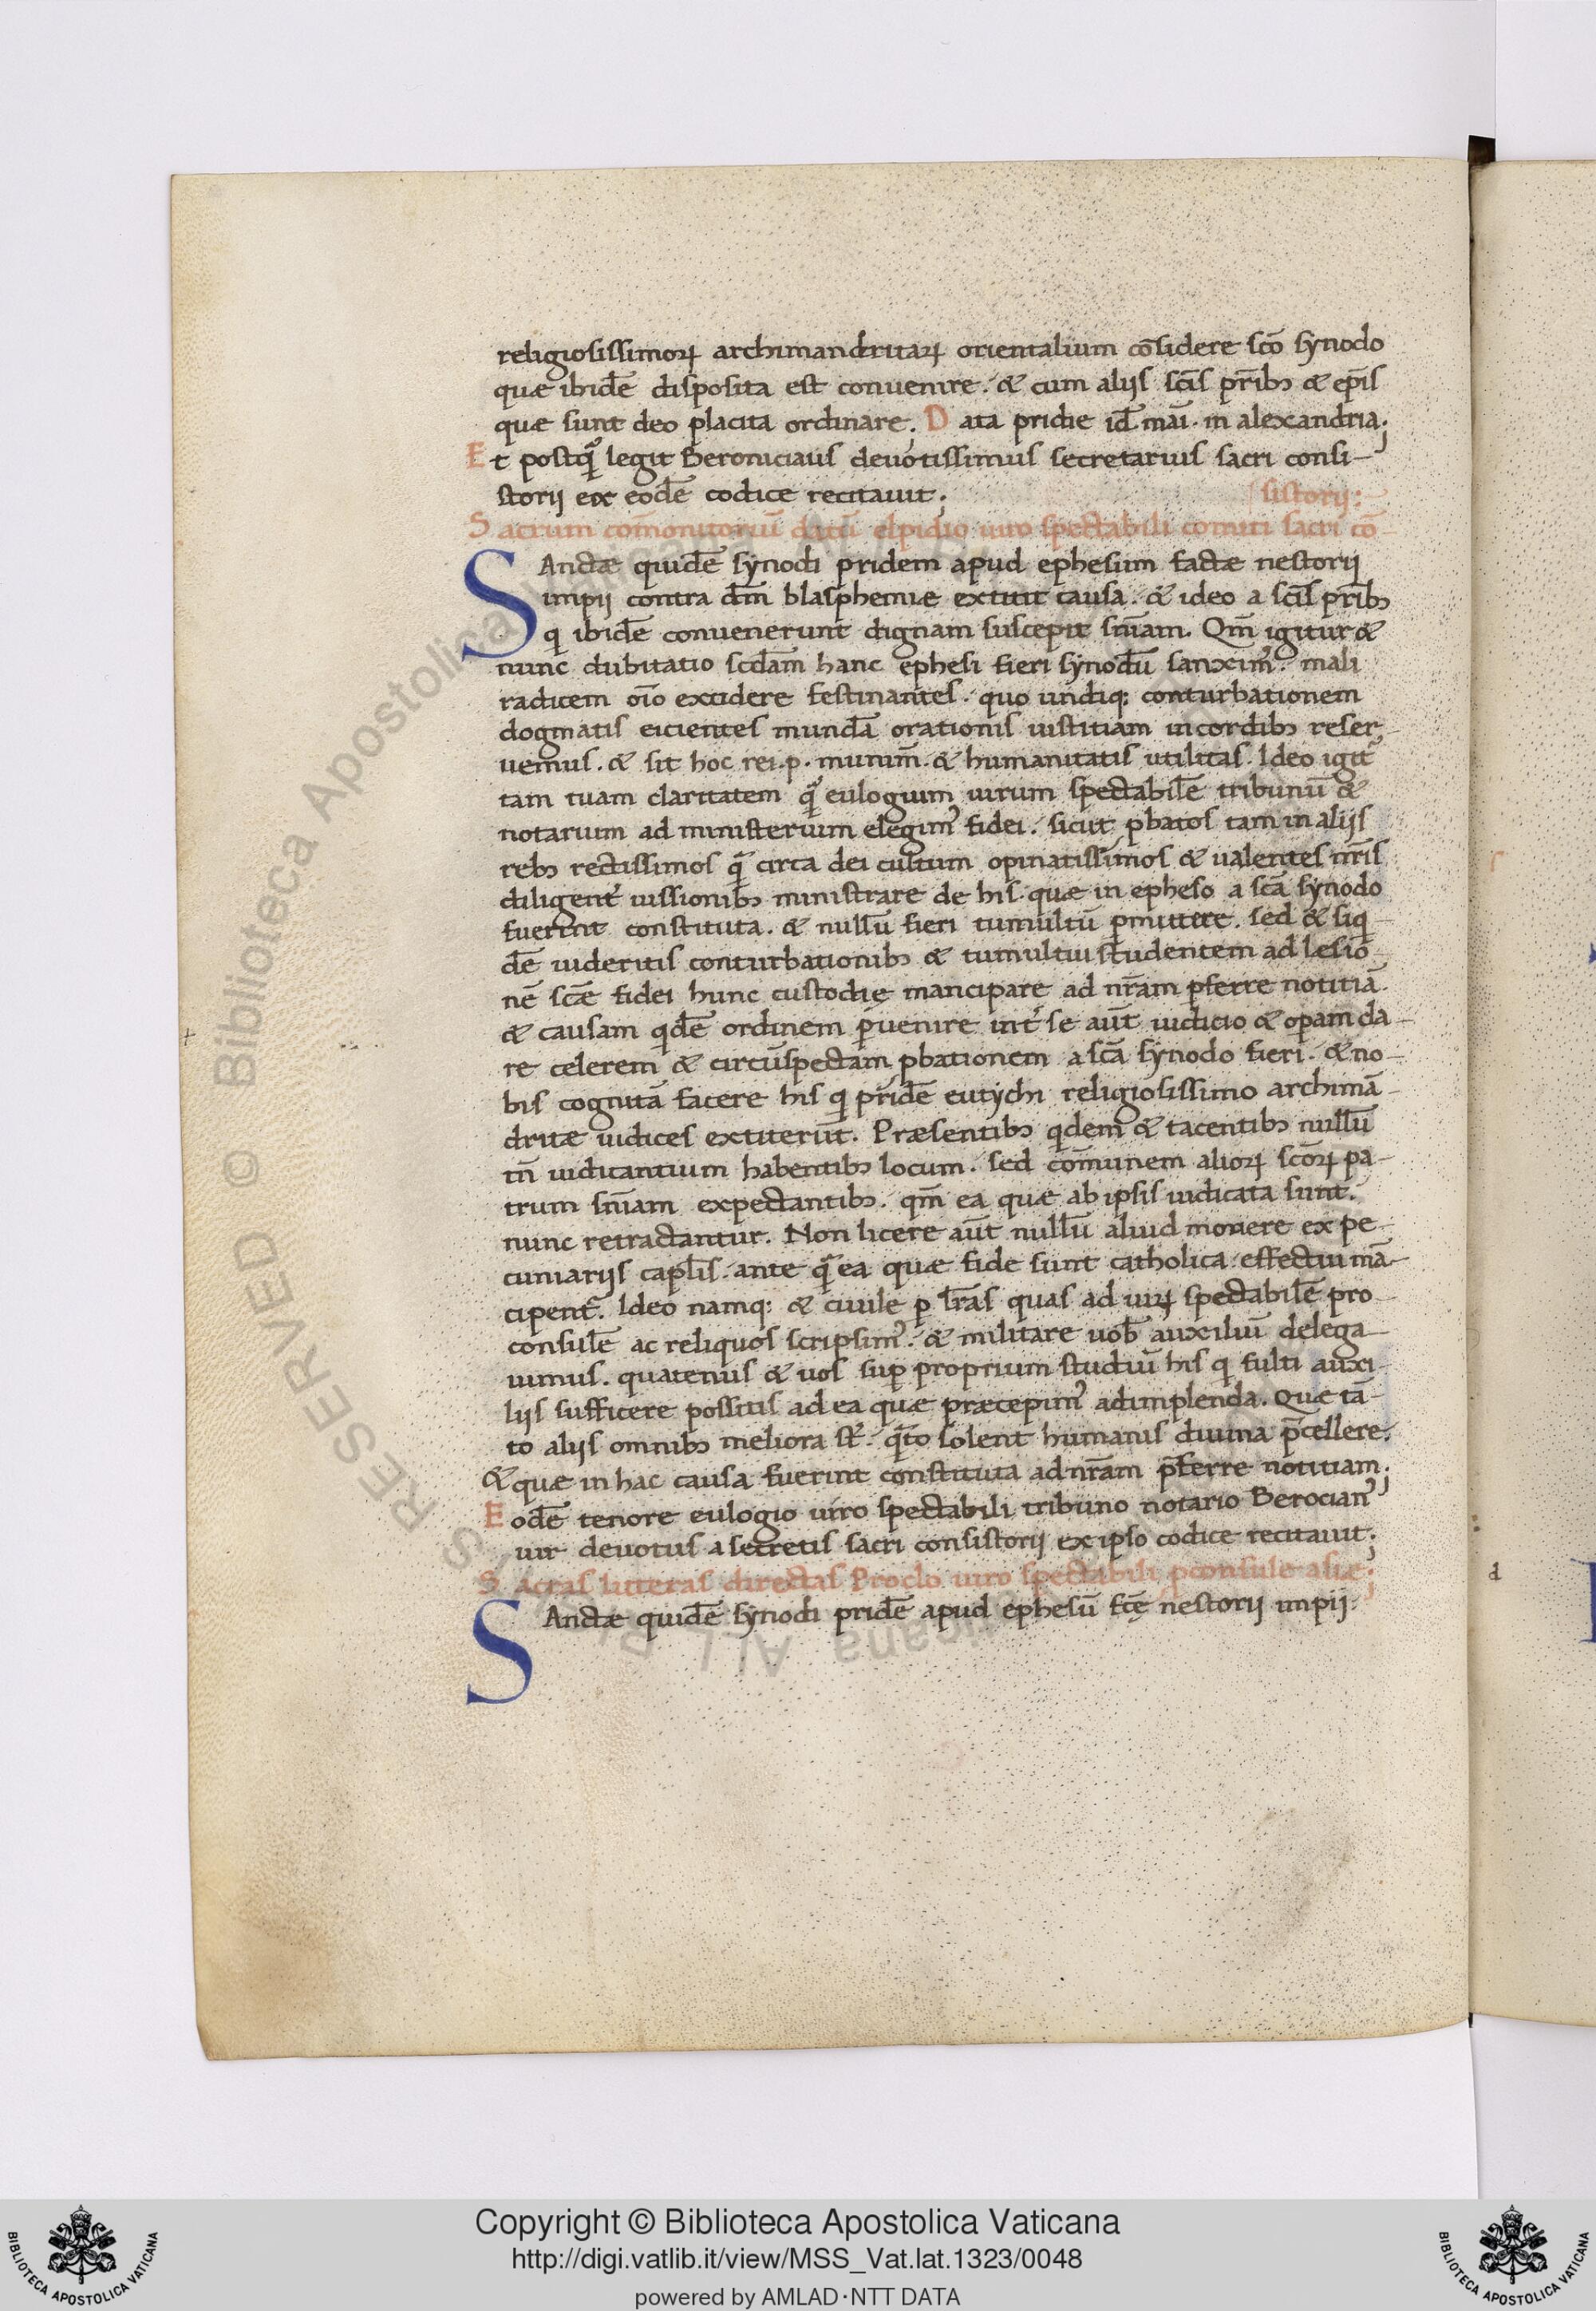 religiosissimoꝝ archimandritaꝝ orientalium cōsidere sc̄o synodo
quæ ibidē disposita est conuenire. & cum alijs sc̄is pr̄ibꝫ & ep̄is
quæ sunt deo placita ordinare; Data pridie id̄ mai. in alexandria;
Et postq̄ legit Beroniciaus deuotissimus secretarius sacri consi-
storij ex eodē codice recitauit;
sistorij:
Sacrum com̄onitoriū datū elpidio uiro spectabili comiti sacri cō-
SAnctæ quidē synodi pridem apud ephesum factæ nestorij
impij contra dm̄ blasphemiæ extitit causa. & ideo a sc̄is pr̄ibꝫ
q ibidē conuenerunt dignam suscepit sn̄iam. Qm̄ igitur &
nunc dubitatio scd̄am hanc ephesi fieri synodū sanximꝰ. mali
radicem oīo excidere festinantes. quo undiq; conturbationem
dogmatis eicientes mundā orationis iustitiam in cordibꝫ reser-
uemus. & sit hoc rei.p. munim̄. & humanitatis utilitas. Ideo igit᷑
tam tuam claritatem q̄ eulogium uirum spectabilē tribunū &
notarium ad ministerium elegimꝰ fidei. sicut ꝓbatos tam in alijs
rebꝫ rectissimos q̄ circa dei cultum opinatissimos & ualentes nr̄is
diligent᷑ iussionibꝫ ministrare de his. quæ in epheso a sc̄a synodo
fuerint constituta. & nullū fieri tumultū ꝑmittere. sed & siq-
dē uideritis conturbationibꝫ & tumultui studentem ad læsio-
nē sc̄æ fidei hunc custodię mancipare ad nr̄am ꝑferre notitiā.
& causam qdē ordinem ꝑuenire int᷑ se aūt iudicio & opam da-
re celerem & circūspectam ꝓbationem a sc̄a synodo fieri. & no-
bis cognitā facere his q pridē eutychi religiosissimo archimā-
dritæ iudices extiterūt. Præsentibꝫ qdem & tacentibꝫ nullū
tn̄ iudicantium habentibꝫ locum. sed cōmunem alioꝝ sc̄oꝝ pa-
trum sn̄iam expectantibꝫ. qm̄ ea quæ ab ipsis iudicata sunt.
nunc retractantur. Non licere aūt nullū aliud mouere ex pe-
cuniarijs capl̄is. ante q̄ ea quæ fide sunt catholica effectui mā-
cipent᷑. Ideo namq; & ciuile ꝑ lr̄as quas ad uiꝝ spectabilē pro-
consulē ac reliquos scripsimꝰ. & militare uob̄ auxiliū delega-
uimus. quatenus & uos suꝑ proprium studiū his q fulti auxi-
lijs sufficere possitis ad ea quæ præcepimꝰ adimplenda. Quę tā-
to alijs omnibꝫ meliora st̄. q̄to solent humanis diuina p̄cellere.
& quæ in hac causa fuerint constituta ad nr̄am ꝑferre notitiam;
Eodē tenore eulogio uiro spectabili tribuno notario Berocianꝰ
uir deuotus a secretis sacri consistorij ex ipso codice recitauit;
Sacras litteras directas Proclo uiro spectabili ꝓconsule asiæ;
SAnctæ quidē synodi pridē apud ephesū fc̄ę nestorij impij.
d
RESERVED © Biblioteca Apostolica Vaticana ALL RIGHTS
Copyright © Biblioteca Apostolica Vaticana
http://digi.vatlib.it/view/MSS_Vat.lat.1323/0048
powered by AMLAD·NTT DATA
BIBLIOTECA APOSTOLICA VATICANA
BIBLIOTECA APOSTOLICA VATICANA